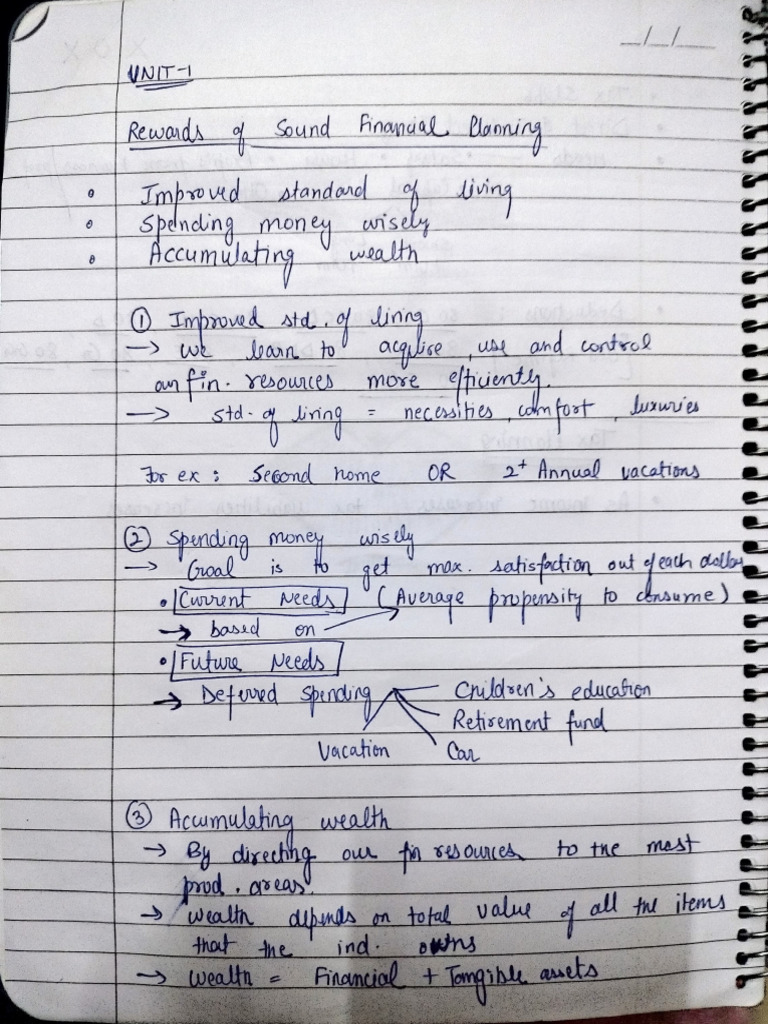 _/_/_
UNIT-1
Rewards of Sound Financial Planning
• Improved standard of living
• Spending money wisely
• Accumulating wealth
① Improved std. of living
→ we learn to acquire, use and control
our fin. resources more efficiently.
→ std. of living = necessities, comfort, luxuries
For ex : Second home OR 2+ Annual vacations
② Spending money wisely
→ Goal is to get max. satisfaction out of each dollar
• Current Needs (Average propensity to consume)
→ based on
• Future Needs
→ Deferred spending Children's education
Retirement fund
Vacation Car
③ Accumulating wealth
→ By directing our fin resources to the most
prod. areas.
→ wealth depends on total value of all the items
that the ind. owns
→ wealth = Financial + Tangible assets